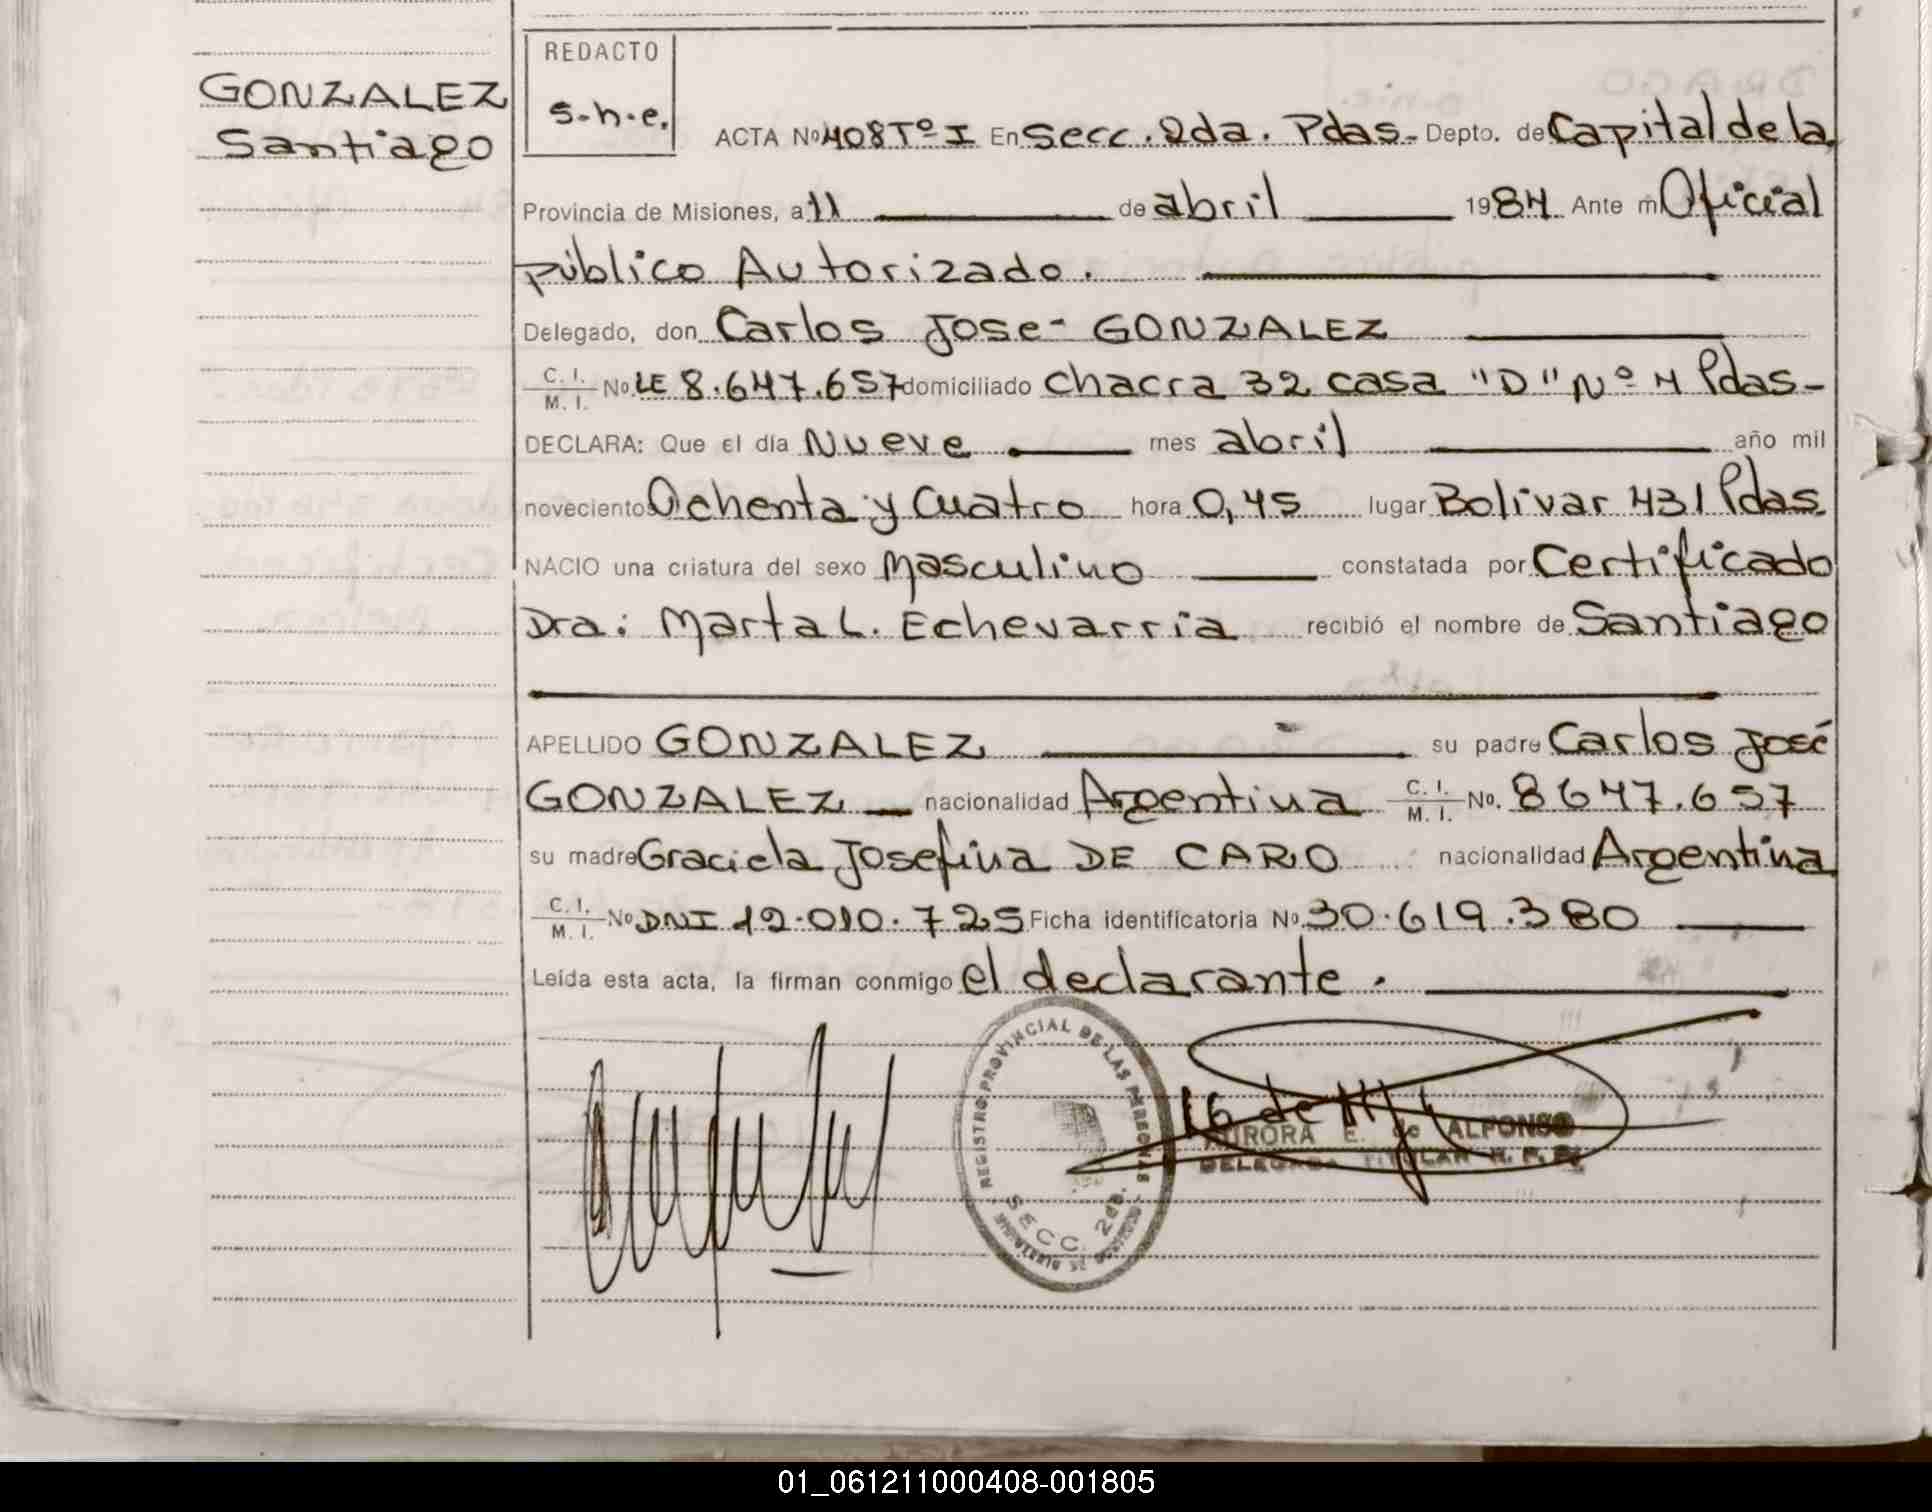 GONZALEZ
Santiago
REDACTO
s.h.e.
ACTA Nº 408 Tº I En Secc. 2da. Pdas- Depto. de Capital de la
Provincia de Misiones, a 11 de abril 1984 Ante mi Oficial
público Autorizado.
Delegado, don Carlos Jose- GONZALEZ
C. I. M. I. No. LE 8.647.657 domiciliado chacra 32 casa "D" Nº 4 Pdas-
DECLARA: Que el día Nueve mes abril año mil
novecientos Ochenta y Cuatro hora 0,45 lugar Bolivar 431 Pdas.
NACIO una criatura del sexo Masculino constatada por Certificado
Dra: Marta L. Echevarria recibió el nombre de Santiago
APELLIDO GONZALEZ su padre Carlos José
GONZALEZ nacionalidad Argentina C. I. M. I. No. 8647.657
su madre Graciela Josefina DE CARO nacionalidad Argentina
C. I. M. I. No DNI 12.010.725 Ficha identificatoria No. 30.619.380
Leída esta acta, la firman conmigo el declarante.
REGISTRO PROVINCIAL DE LAS PERSONAS
SECC. 2da.
AURORA E. de ALFONSO
DELEGADA TITULAR R. P. P.
01_061211000408-001805